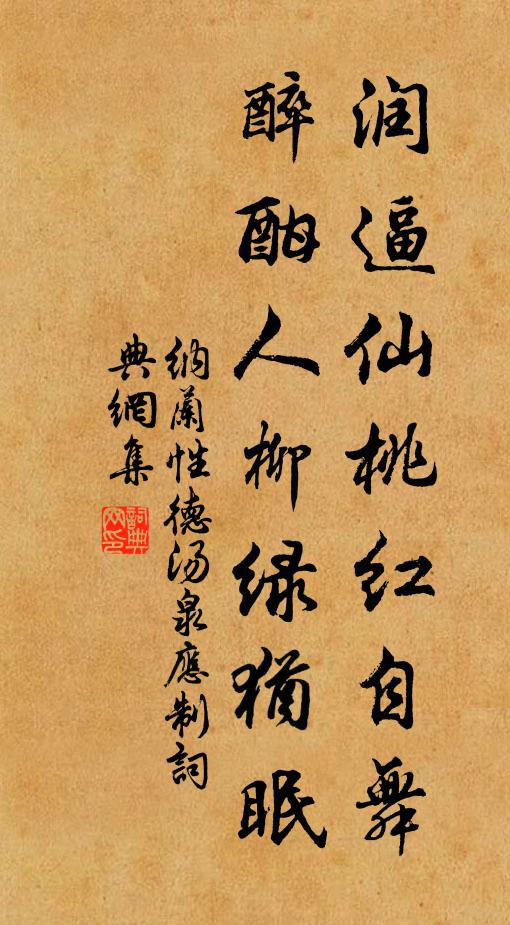 润逼仙桃红自舞
醉酣人柳绿犹眠
纳兰性德汤泉應制詞
典網集
詞典網印